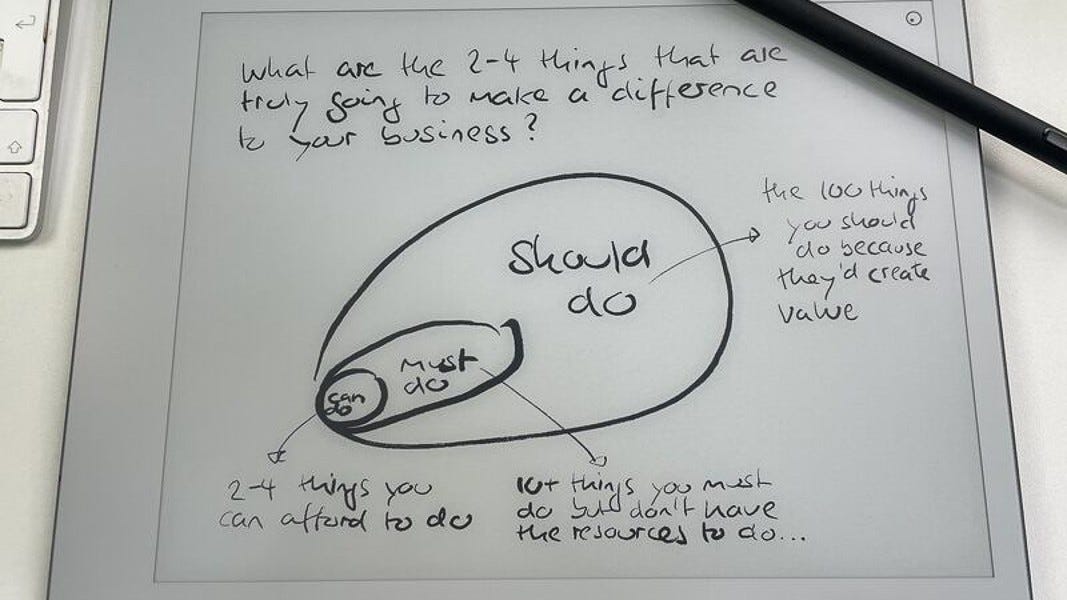 What are the 2-4 things that are
truly going to make a difference
to your business?
the 100 things
you should
do because
they'd create
value
Should
do
must
do
can
do
2-4 things you
can afford to do
10+ things you must
do but don't have
the resources to do...